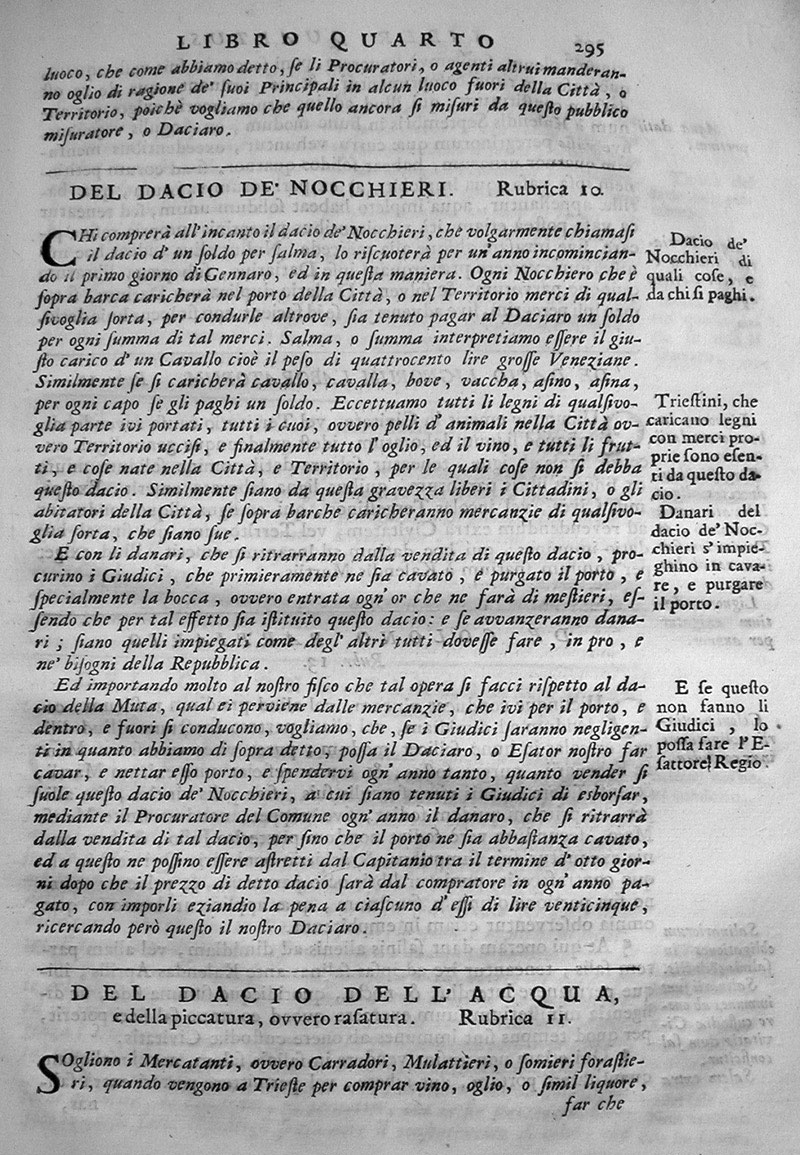 LIBRO QUARTO 295
luoco, che come abbiamo detto, ſe li Procuratori, o agenti altrui manderan-
no oglio di ragione de' ſuoi Principali in alcun luoco fuori della Città, o
Territorio, poichè vogliamo che quello ancora ſi miſuri da queſto pubblico
miſuratore, o Daciaro.
DEL DACIO DE' NOCCHIERI. Rubrica 10.
CHi comprerà all'incanto il dacio de' Nocchieri, che volgarmente chiamaſi
il dacio d'un ſoldo per ſalma, lo riſcuoterà per un'anno incomincian-
do il primo giorno di Gennaro, ed in queſta maniera. Ogni Nocchiero che è
ſopra barca caricherà nel porto della Città, o nel Territorio merci di qual-
ſivoglia ſorta, per condurle altrove, ſia tenuto pagar al Daciaro un ſoldo
per ogni ſumma di tal merci. Salma, o ſumma interpretiamo eſſere il giu-
ſto carico d'un Cavallo cioè il peſo di quattrocento lire groſſe Veneziane.
Similmente ſe ſi caricherà cavallo, cavalla, bove, vaccha, aſino, aſina,
per ogni capo ſe gli paghi un ſoldo. Eccettuamo tutti li legni di qualſivo-
glia parte ivi portati, tutti i cuoi, ovvero pelli d'animali nella Città ov-
vero Territorio ucciſi, e finalmente tutto l'oglio, ed il vino, e tutti li frut-
ti, e coſe nate nella Città, e Territorio, per le quali coſe non ſi debba
queſto dacio. Similmente ſiano da queſta gravezza liberi i Cittadini, o gli
abitatori della Città, ſe ſopra barche caricheranno mercanzie di qualſivo-
glia ſorta, che ſiano ſue.
E con li danari, che ſi ritrarranno dalla vendita di queſto dacio, pro-
curino i Giudici, che primieramente ne ſia cavato, e purgato il porto, e
ſpecialmente la bocca, ovvero entrata ogn'or che ne farà di meſtieri, eſ-
ſendo che per tal effetto ſia iſtituito queſto dacio: e ſe avvanzeranno dana-
ri; ſiano quelli impiegati come degl'altri tutti doveſſe fare, in pro, e
ne' biſogni della Repubblica.
Ed importando molto al noſtro fiſco che tal opera ſi facci riſpetto al da-
cio della Muta, qual ei perviene dalle mercanzie, che ivi per il porto, e
dentro, e fuori ſi conducono, vogliamo, che, ſe i Giudici ſaranno negligen-
ti in quanto abbiamo di ſopra detto, poſſa il Daciaro, o Eſator noſtro far
cavar, e nettar eſſo porto, e ſpendervi ogn'anno tanto, quanto vender ſi
ſuole queſto dacio de' Nocchieri, a cui ſiano tenuti i Giudici di esborſar,
mediante il Procuratore del Comune ogn'anno il danaro, che ſi ritrarrà
dalla vendita di tal dacio, per ſino che il porto ne ſia abbaſtanza cavato,
ed a queſto ne poſſino eſſere aſtretti dal Capitanio tra il termine d'otto gior-
ni dopo che il prezzo di detto dacio ſarà dal compratore in ogn'anno pa-
gato, con imporli eziandio la pena a ciaſcuno d'eſſi di lire venticinque,
ricercando però queſto il noſtro Daciaro.
Dacio de'
Nocchieri di
quali coſe, e
da chi ſi paghi.
Trieſtini, che
caricano legni
con merci pro-
prie ſono eſen-
ti da queſto da-
cio.
Danari del
dacio de' Noc-
chieri s'impie-
ghino in cava-
re, e purgare
il porto.
E ſe queſto
non fanno li
Giudici, lo
poſſa fare l'E-
ſattore Regio.
DEL DACIO DELL'ACQUA,
e della piccatura, ovvero raſatura. Rubrica 11.
SOgliono i Mercatanti, ovvero Carradori, Mulattieri, o ſomieri foraſtie-
ri, quando vengono a Trieſte per comprar vino, oglio, o ſimil liquore,
far che